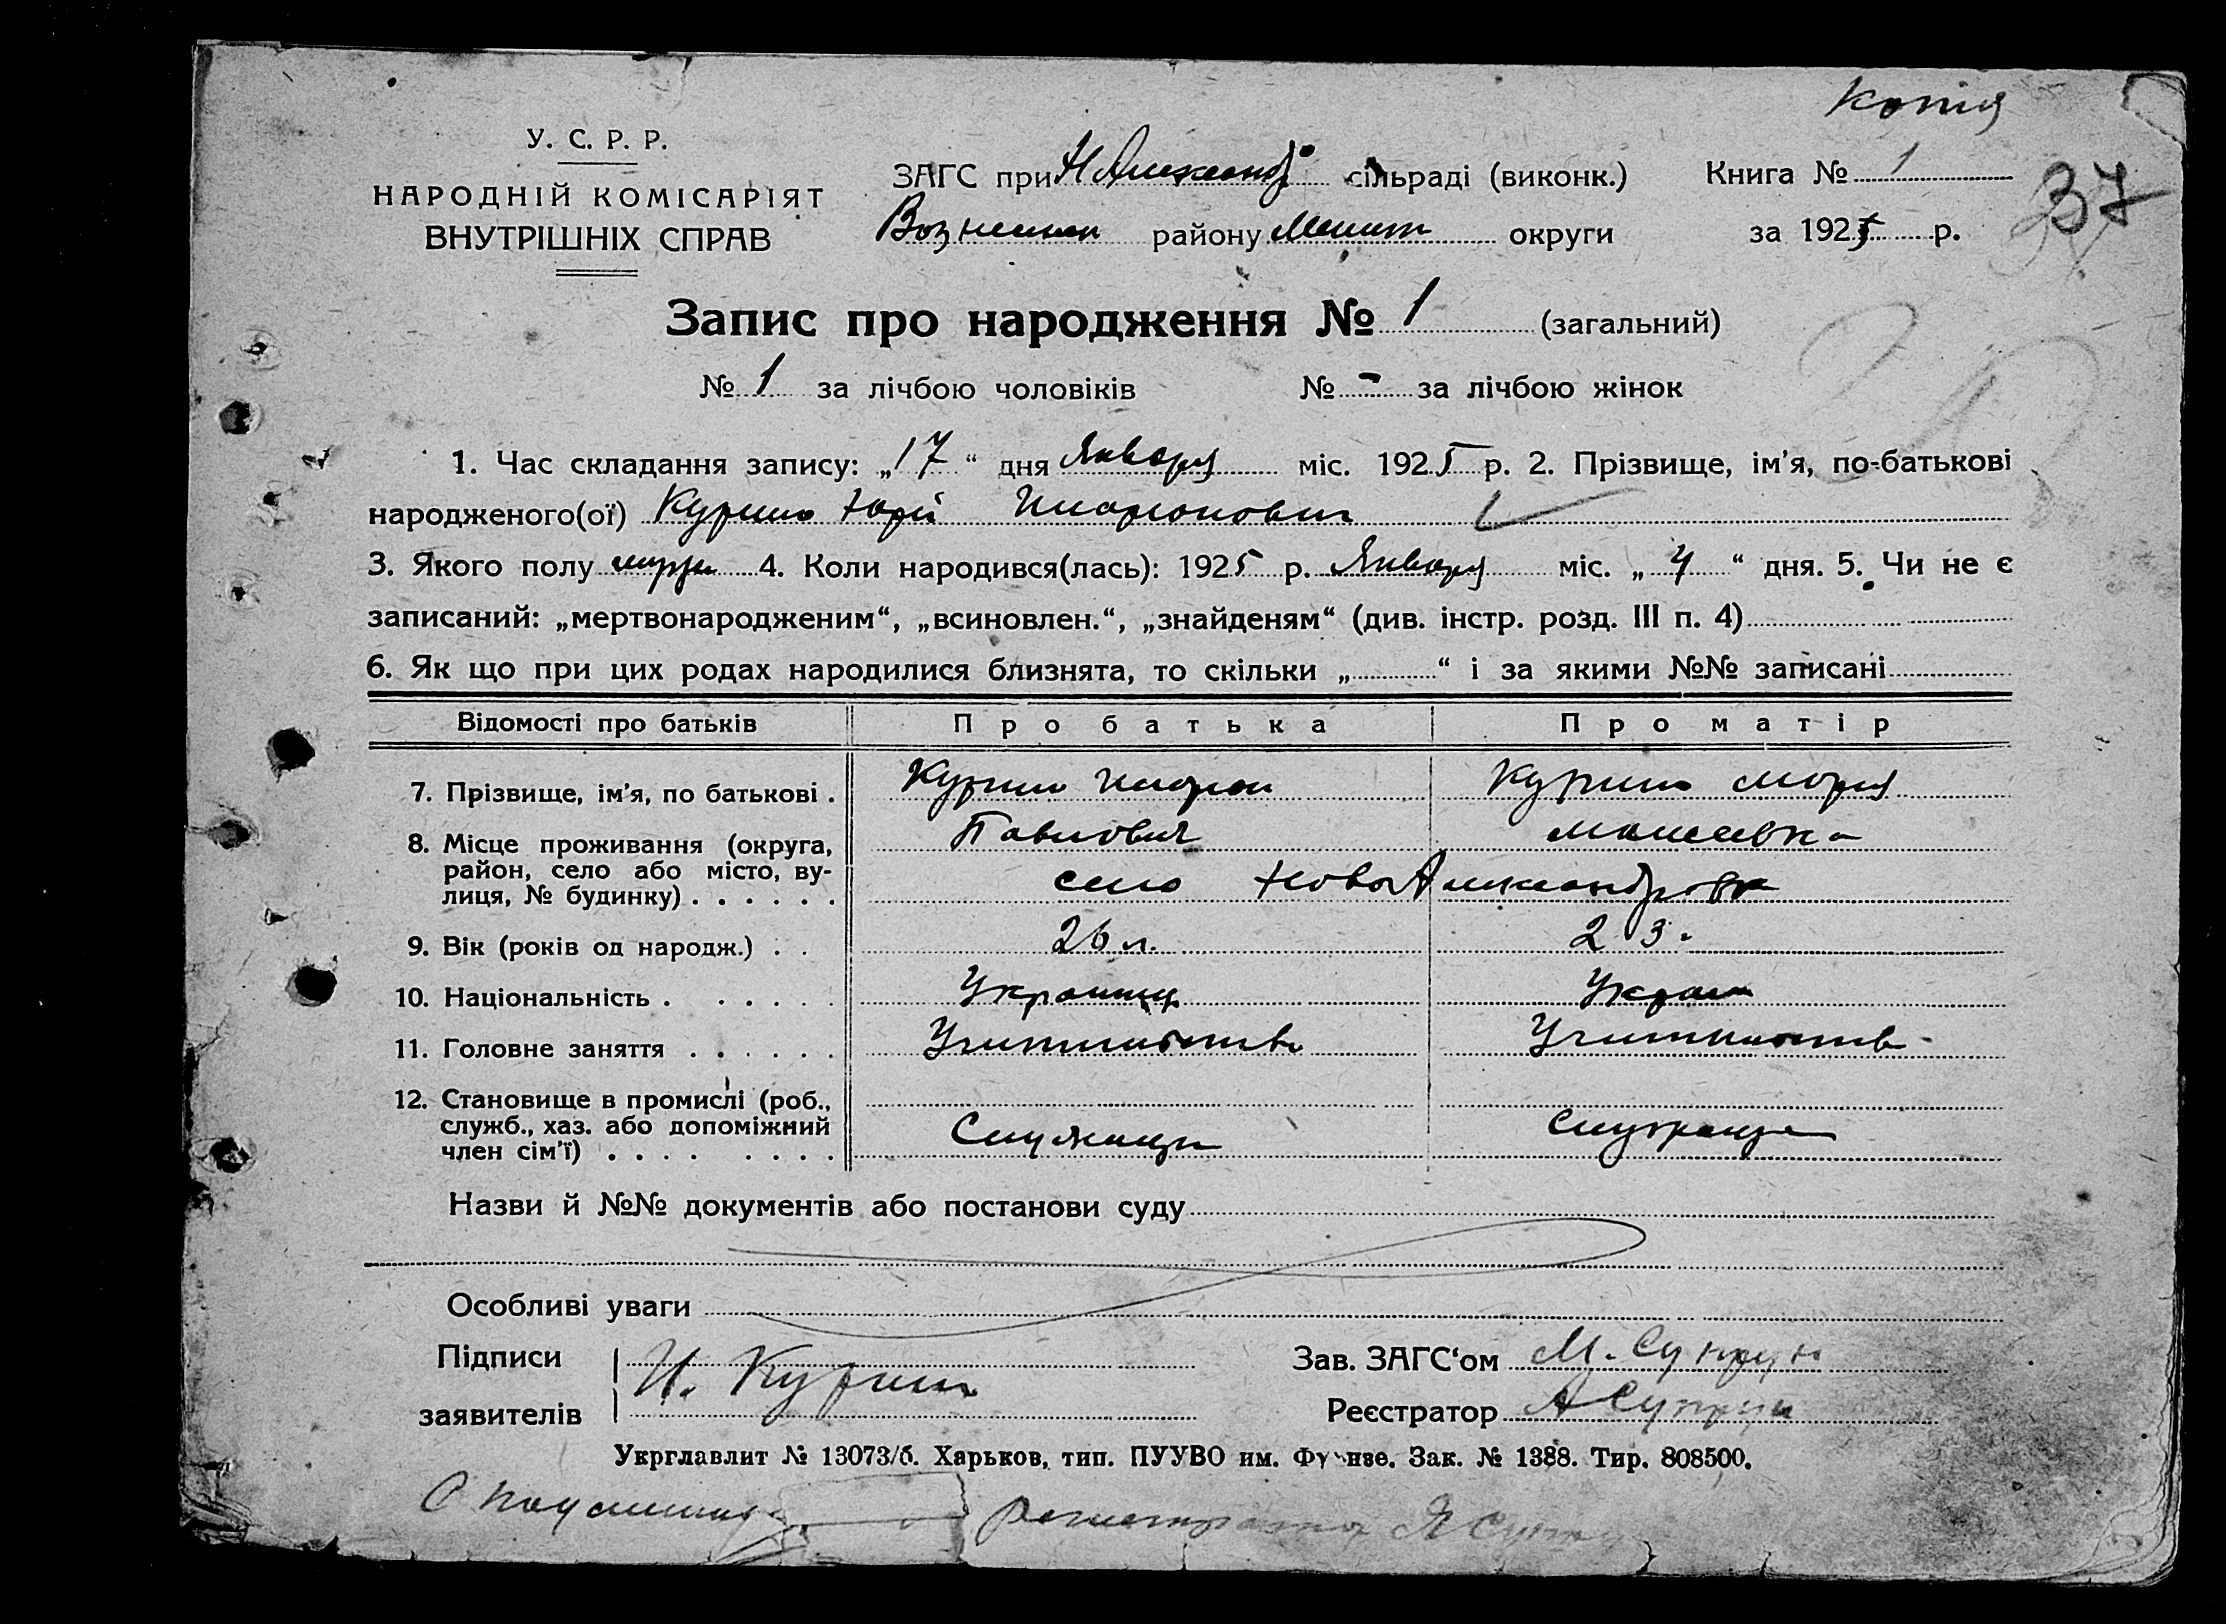 Копія
У. С. Р. Р.
НАРОДНІЙ КОМІСАРІЯТ
ВНУТРІШНІХ СПРАВ
ЗАГС при Н Александ сільраді (виконк.)
району Мелит округи
Книга № 1
за 1925 р.
37
Запис про народження № 1 (загальний)
№ 1 за лічбою чоловіків № - за лічбою жінок
1. Час складання запису: „17“ дня Января міс. 1925 р. 2. Прізвище, ім'я, по-батькові
народженого(ої) Курило Юрій Иларионович
3. Якого полу 4. Коли народився(лась): 1925 р. Января міс. „4“ дня. 5. Чи не є
записаний: „мертвонародженим“, „всиновлен.“, „знайденям“ (див. інстр. розд. III п. 4)
6. Як що при цих родах народилися близнята, то скільки „ “ і за якими №№ записані
Відомості про батьків Про батька Про матір
7. Прізвище, ім'я, по батькові . Курило Иларион Курило Мария
Павлович
8. Місце проживання (округа,
район, село або місто, ву-
лиця, № будинку) . . . . . . село НовоАлександровка
9. Вік (років од народж.) . . 26 л. 23.
10. Національність . . . . . . Украинец Украин
11. Головне заняття . . . . . . Учительств Учительств
12. Становище в промислі (роб.,
служб., хаз. або допоміжний
член сім'ї) . . . . . . . . Служащи Служаща
Назви й №№ документів або постанови суду
Особливі уваги
Підписи
заявителів
И. Курило
Зав. ЗАГС‘ом М. Супрун
Реєстратор А Супрун
Укрглавлит № 13073/б. Харьков, тип. ПУУВО им. Фрунзе. Зак. № 1388. Тир. 808500.
С подлинным